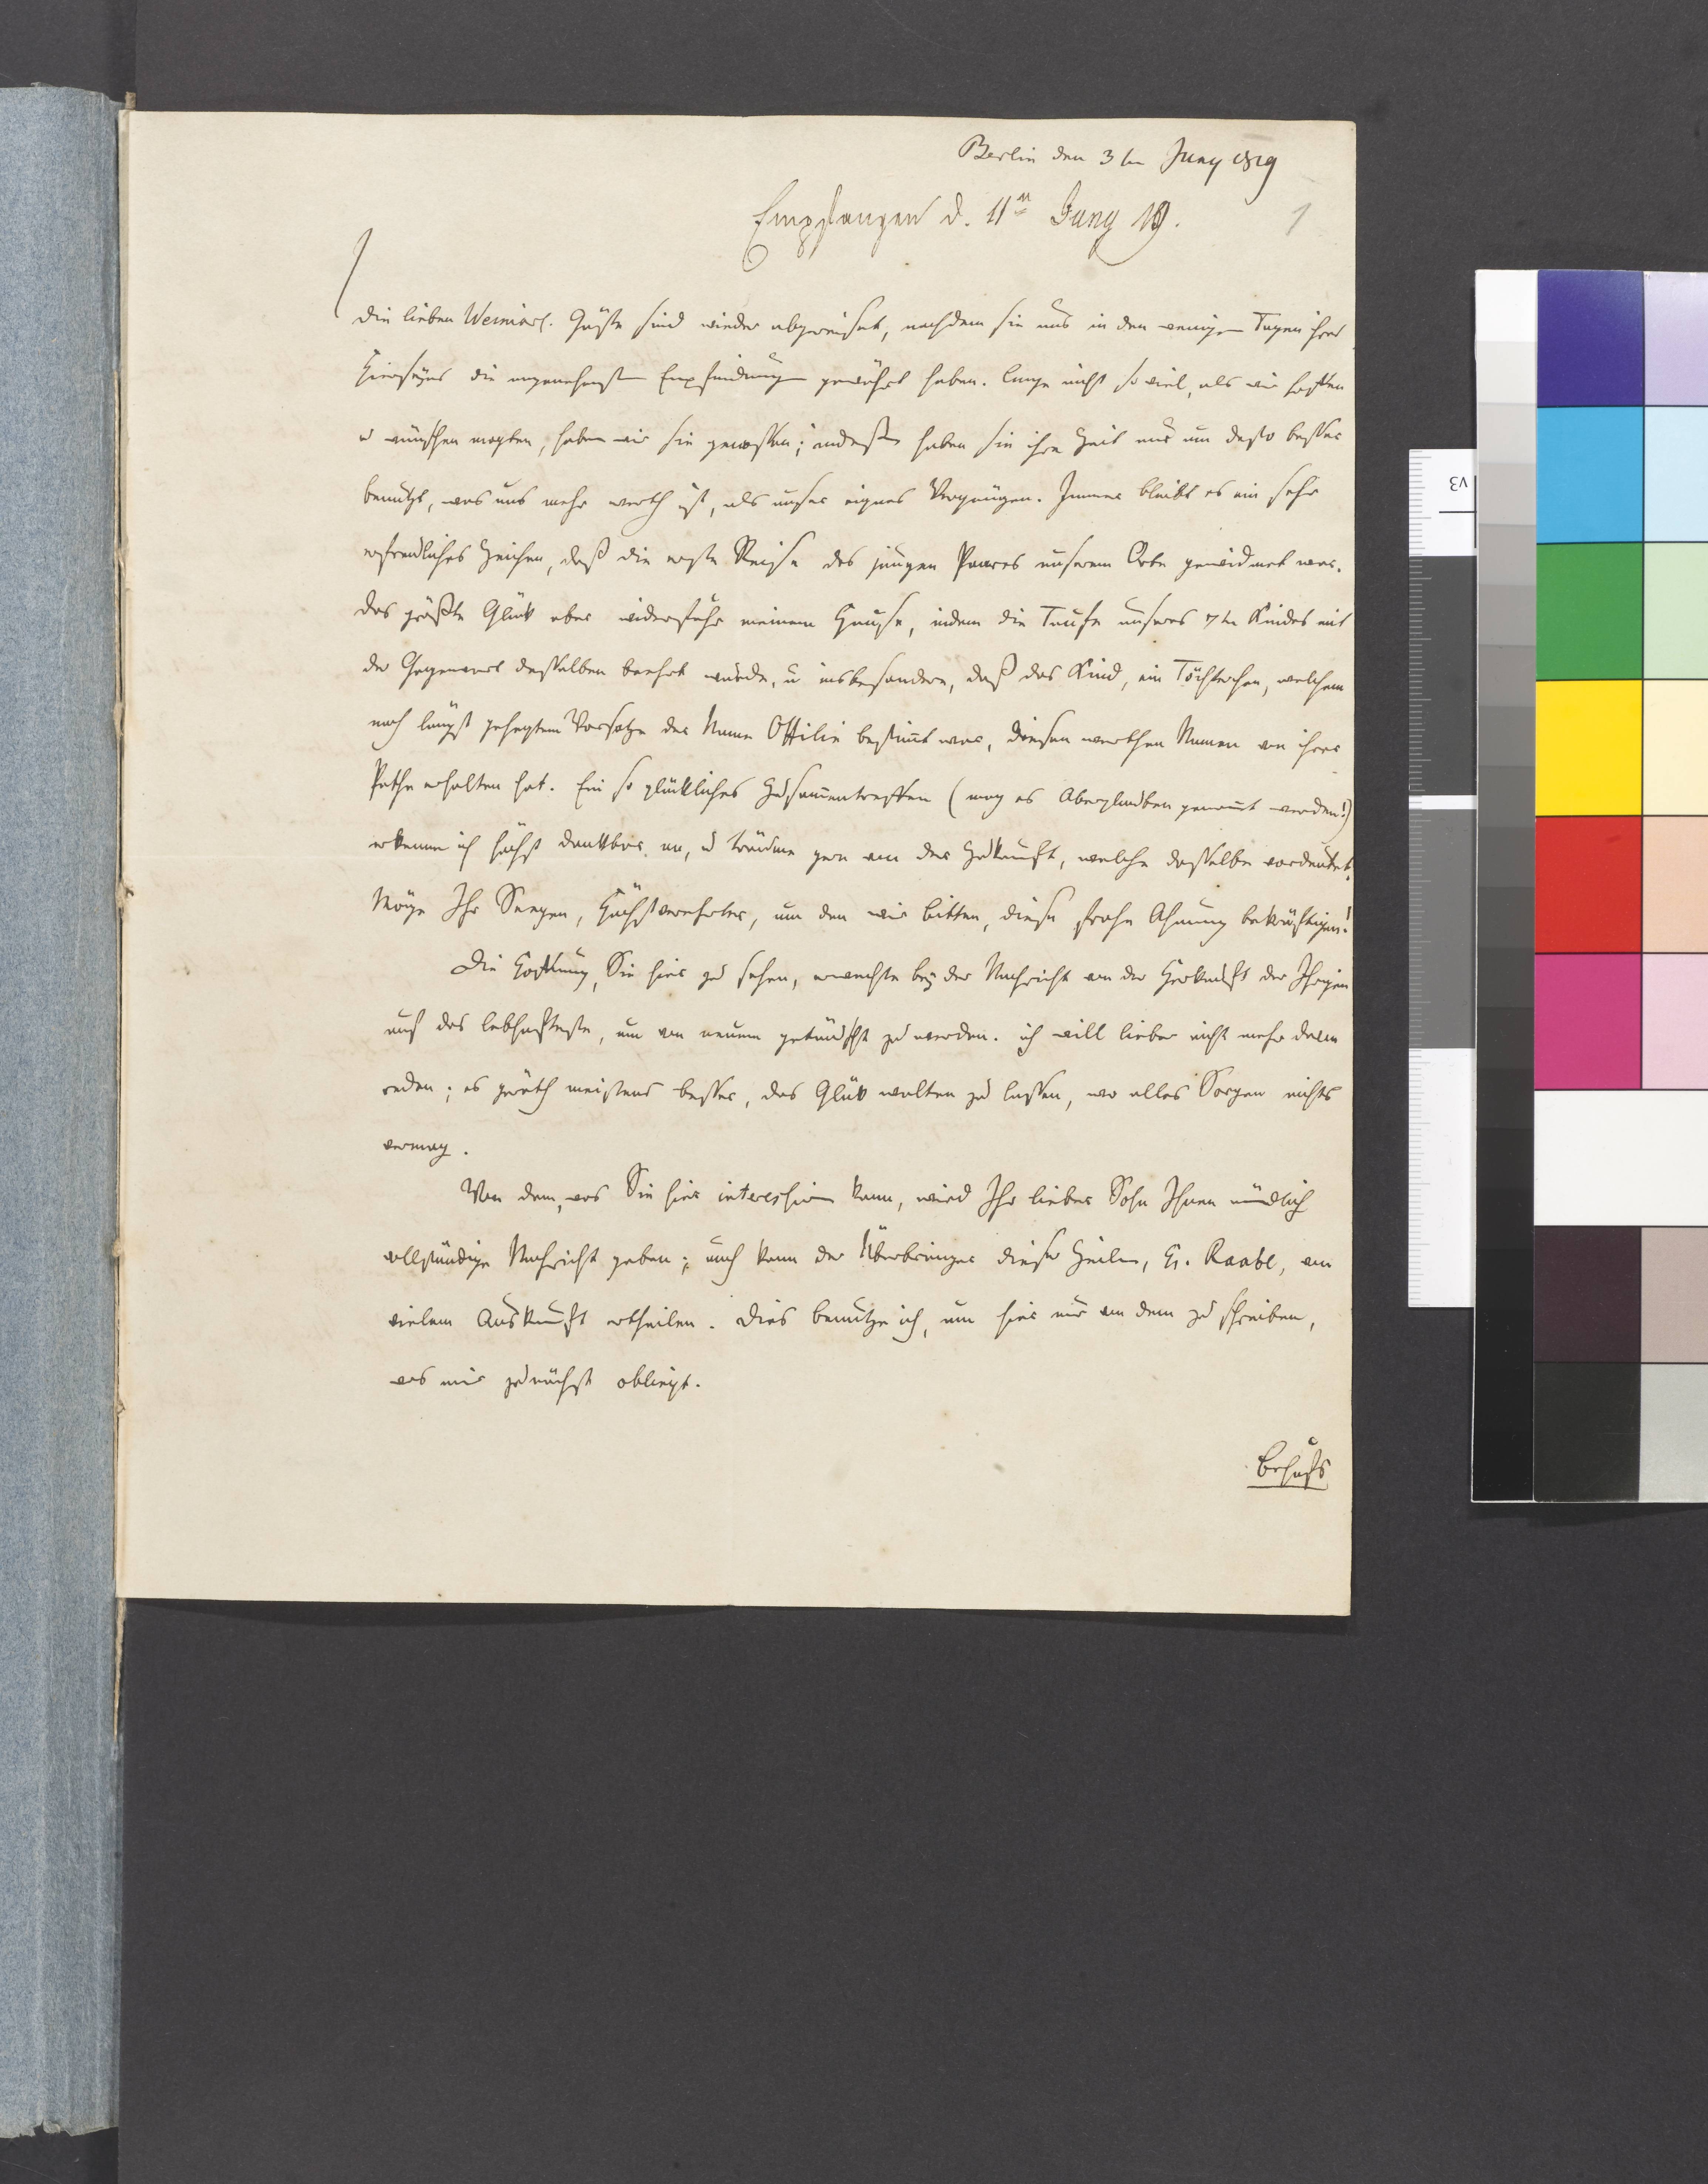 Berlin den 3ten Juny 1819
Empfangen d. 11n Juny 19.
1
Die lieben Weimars. Gäste sind wieder abgereiset, nachdem sie uns in den wenigen Tagen ihres
Hierseyns die angenehmsten Empfindungen gewährt haben. Lange nicht so viel, als wir hofften
u wünschen mogten, haben wir sie genossen; indessen haben sie ihre Zeit nur um desto besser
benutzt, was uns mehr werth ist, als unser eignes Vergnügen. Immer bleibt es ein sehr
erfreuliches Zeichen, daß die erste Reise des jungen Paares unserem Orte gewidmet war.
Das größte Glük aber widerfuhr meinem Hause, indem die Taufe unseres 7ten Kindes mit
der Gegenwart desselben beehrt wurde, u insbesondere, daß das Kind, ein Töchterchen, welchem
nach längst gehegtem Vorsatze der Name Ottilie bestimt war, diesen werthen Namen von ihrer
Pathe erhalten hat. Ein so glükliches Zusamentreffen (mag es Aberglauben genannt werden!)
erkenne ich höchst dankbar an, u träume gern von der Zukunft, welche dasselbe vordeutet.
Möge Ihr Seegen, Höchstverehrter, um den wir bitten, diese frohe Ahnung bekräftigen!
Die Hoffnung, Sie hier zu sehen, erwachte bey der Nachricht von der Herkunft der Ihrigen
auf das lebhafteste, um von neuem getäuscht zu werden. ich will lieber nicht mehr davon
reden; es geräth meistens besser, das Glük walten zu lassen, wo alles Sorgen nichts
vermag.
Von dem, was Sie hier interessiren kann, wird Ihr lieber Sohn Ihnen mündlich
vollständige Nachricht geben; auch kann der Überbringer dieser Zeilen, H. Raabe, von
vielem Auskunft ertheilen. Dies benutze ich, um hier nur von dem zu schreiben,
was mir zunächst obliegt.
Behufs